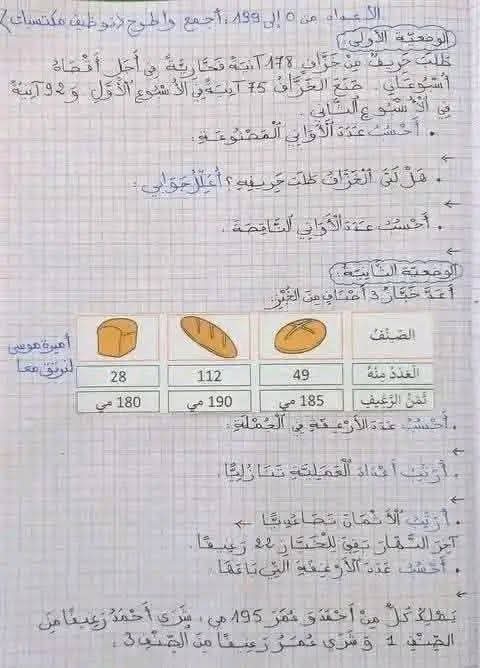 الأعداد من 0 إلى 199، أجمع وأطرح (توظيف مكتسبات)
الوضعيّة الأولى:
طَلَبَ حَرِيفٌ مِنْ خَزَّافٍ 178 آنِيَةً فَخَّارِيَّةً فِي أَجَلٍ أَقْصَاهُ
أُسْبُوعَانِ. صَنَعَ الْخَزَّافُ 75 آنِيَةً فِي الْأُسْبُوعِ الْأَوَّلِ وَ 92 آنِيَةً
فِي الْأُسْبُوعِ الثَّانِي.
• أَحْسُبُ عَدَدَ الْأَوَانِي الْمَصْنُوعَةِ:
←
• هَلْ لَبَّى الْخَزَّافُ طَلَبَ حَرِيفِهِ؟ أُعَلِّلُ جَوَابِي:
←
• أَحْسُبُ عَدَدَ الْأَوَانِي النَّاقِصَةِ.
←
الوضعيّة الثّانية:
أَعَدَّ خَبَّازٌ 3 أَصْنَافٍ مِنَ الْخُبْزِ.
أميرة موسى
لنرتق معا
الصّنْفُ
الْعَدَدُ مِنْهُ 49 112 28
ثَمَنُ الرَّغِيفِ 185 مي 190 مي 180 مي
• أَحْسُبُ عَدَدَ الْأَرْغِفَةِ فِي الْجُمْلَةِ:
←
• أُرَتِّبُ أَعْدَادَ الْعَمَلِيَّةِ تَنَازُلِيًّا.
←
• أُرَتِّبُ الْأَثْمَانَ تَصَاعُدِيًّا ←
آخِرَ النَّهَارِ بَقِيَ لِلْخَبَّازِ 22 رَغِيفًا.
• أَحْسُبُ عَدَدَ الْأَرْغِفَةِ الَّتِي بَاعَهَا.
←
يَمْلِكُ كُلٌّ مِنْ أَحْمَدَ وَ عُمَرَ 195 مي، شَرَى أَحْمَدُ رَغِيفًا مِنَ
الصِّنْفِ 1 وَ شَرَى عُمَرُ رَغِيفًا مِنَ الصِّنْفِ 3: